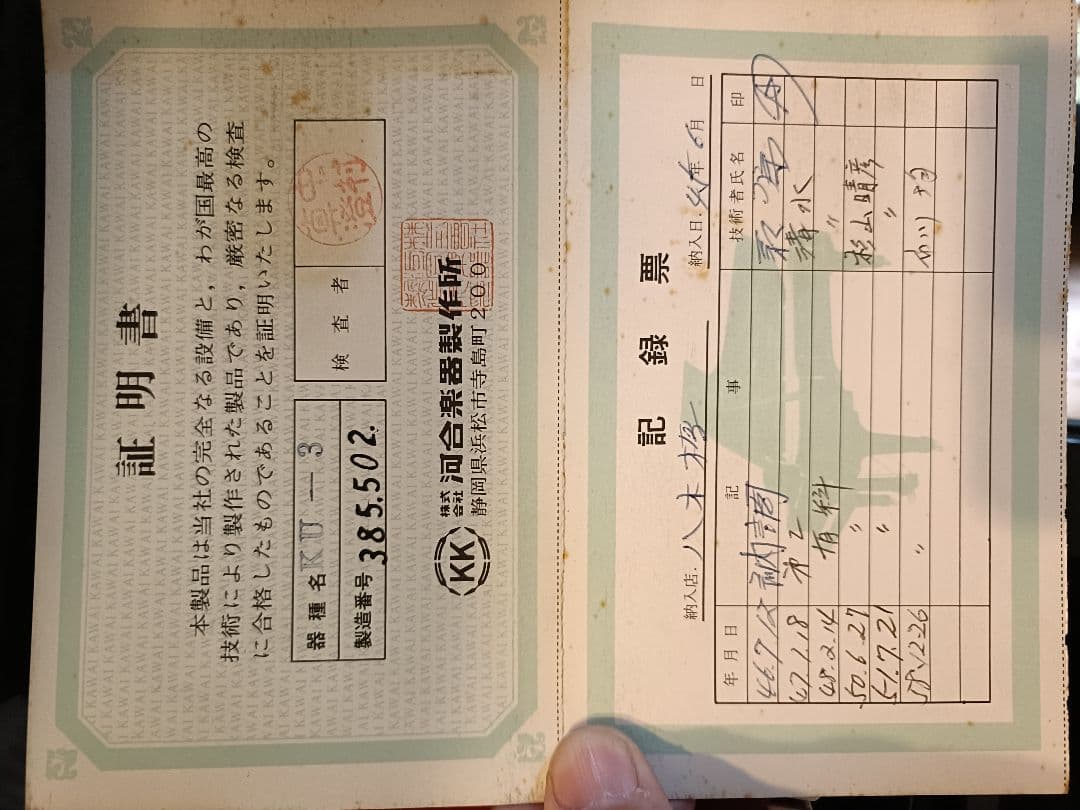 証明書
本製品は当社の完全なる設備と，わが国最高の
技術により製作された製品であり，厳密なる検査
に合格したものであることを証明いたします。
器種名 KU－3
製造番号 385.502.
検査者
KK 株式会社 河合楽器製作所
静岡県浜松市寺島町200
記録票
納入店. 八木橋 納入日. 年 6月 日
年月日 記事 技術者氏名 印
46.7.12 納調
47.1.18 第二 清水
48.2.14 有料 〃
50.6.27 〃 杉山晴彦
51.7.21 〃 〃
12.26 〃